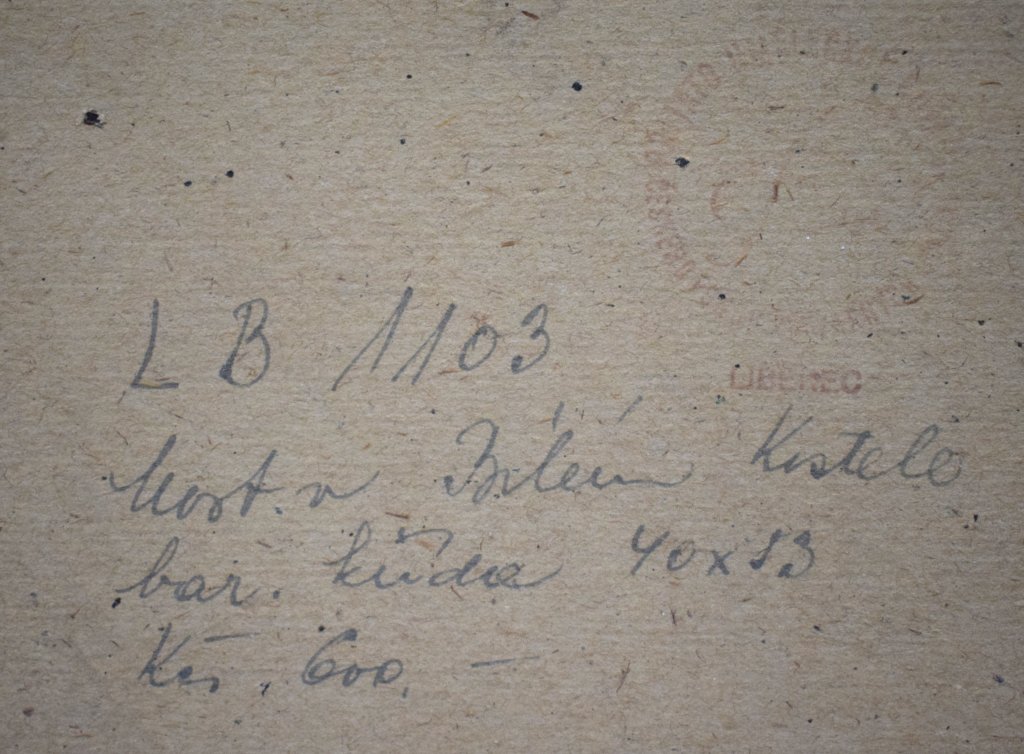 LIBEREC
LB 1103
Most. v Bílém Kostele
bar. křída 40x53
Kčs. 600.—